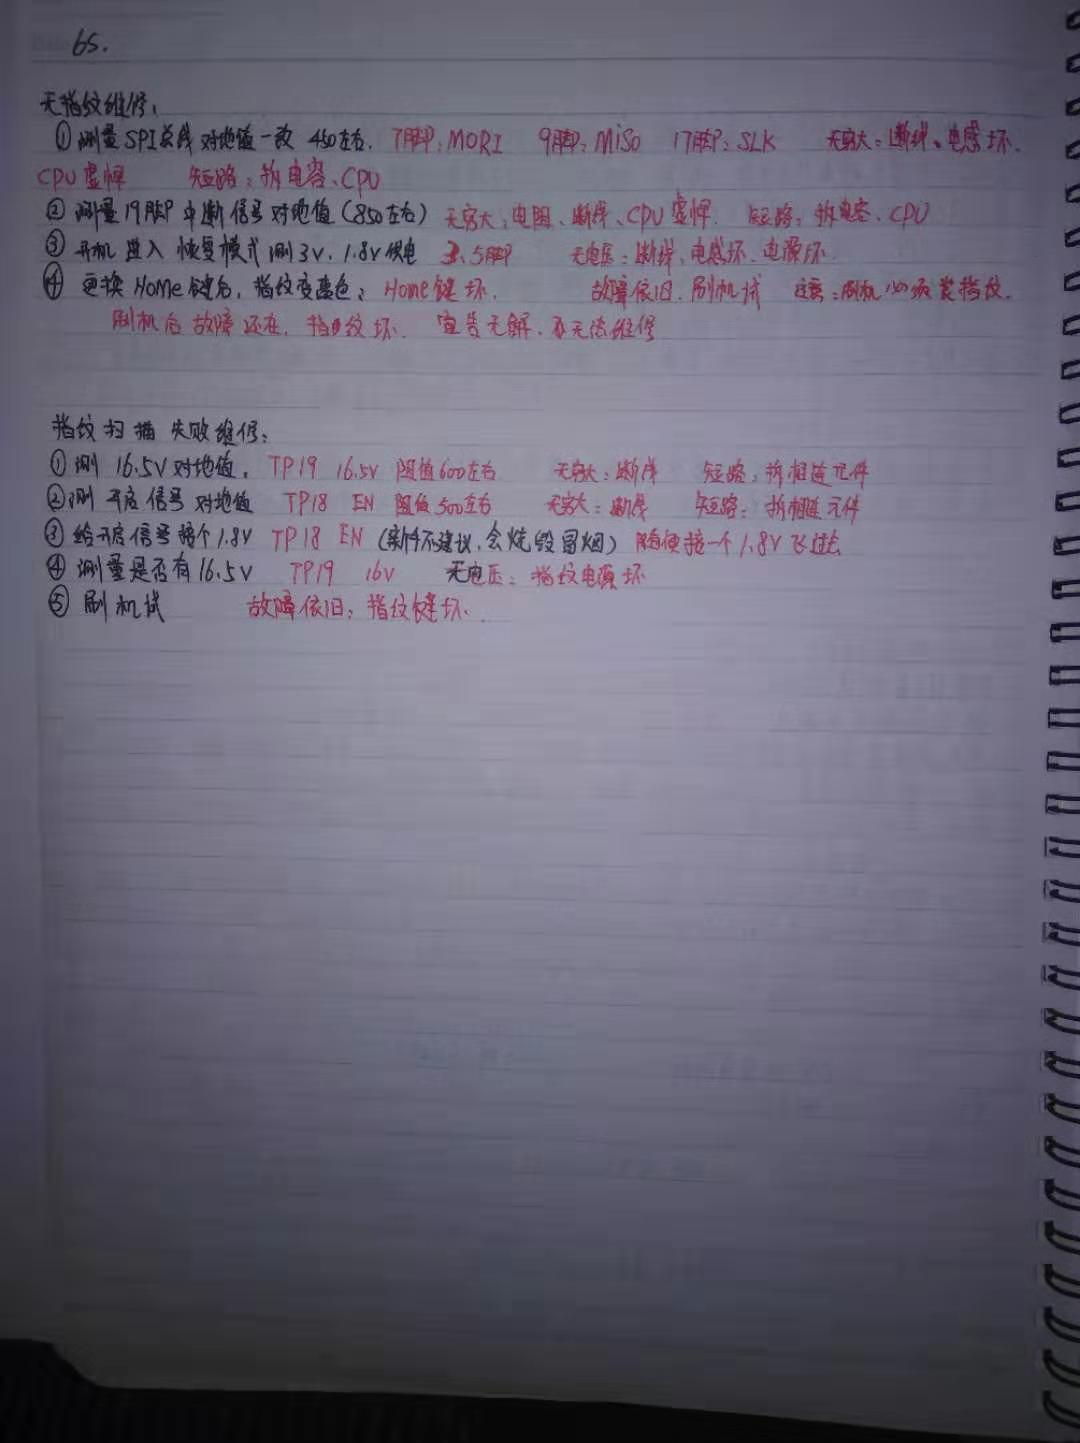 6S.
无指纹维修:
① 测量SPI总线对地值一致 450左右. 7脚: MORI 9脚: MiSO 17脚: SLK 无穷大: 断线、电感坏.
CPU虚焊 短路: 拆电容、CPU
② 测量19脚中断信号对地值(850左右) 无穷大: 电阻、断线、CPU虚焊. 短路: 拆电容、CPU
③ 开机进入恢复模式测3V、1.8V供电 3、5脚 无电压: 断线、电感坏、电源坏.
④ 更换Home键后, 指纹变蓝色: Home键坏. 故障依旧. 刷机试 注意: 刷机必须装指纹.
刷机后故障还在, 指纹坏. 宣告无解. 亦无法维修
指纹扫描失败维修:
① 测16.5V对地值. TP19 16.5V 阻值600左右 无穷大: 断线 短路: 拆相连元件
② 测开启信号对地值 TP18 EN 阻值500左右 无穷大: 断线 短路: 拆相连元件
③ 给开启信号接个1.8V TP18 EN (新手不建议, 会烧毁冒烟) 随便接一个1.8V飞过去
④ 测量是否有16.5V TP19 16V 无电压: 指纹电源坏
⑤ 刷机试 故障依旧: 指纹键坏.